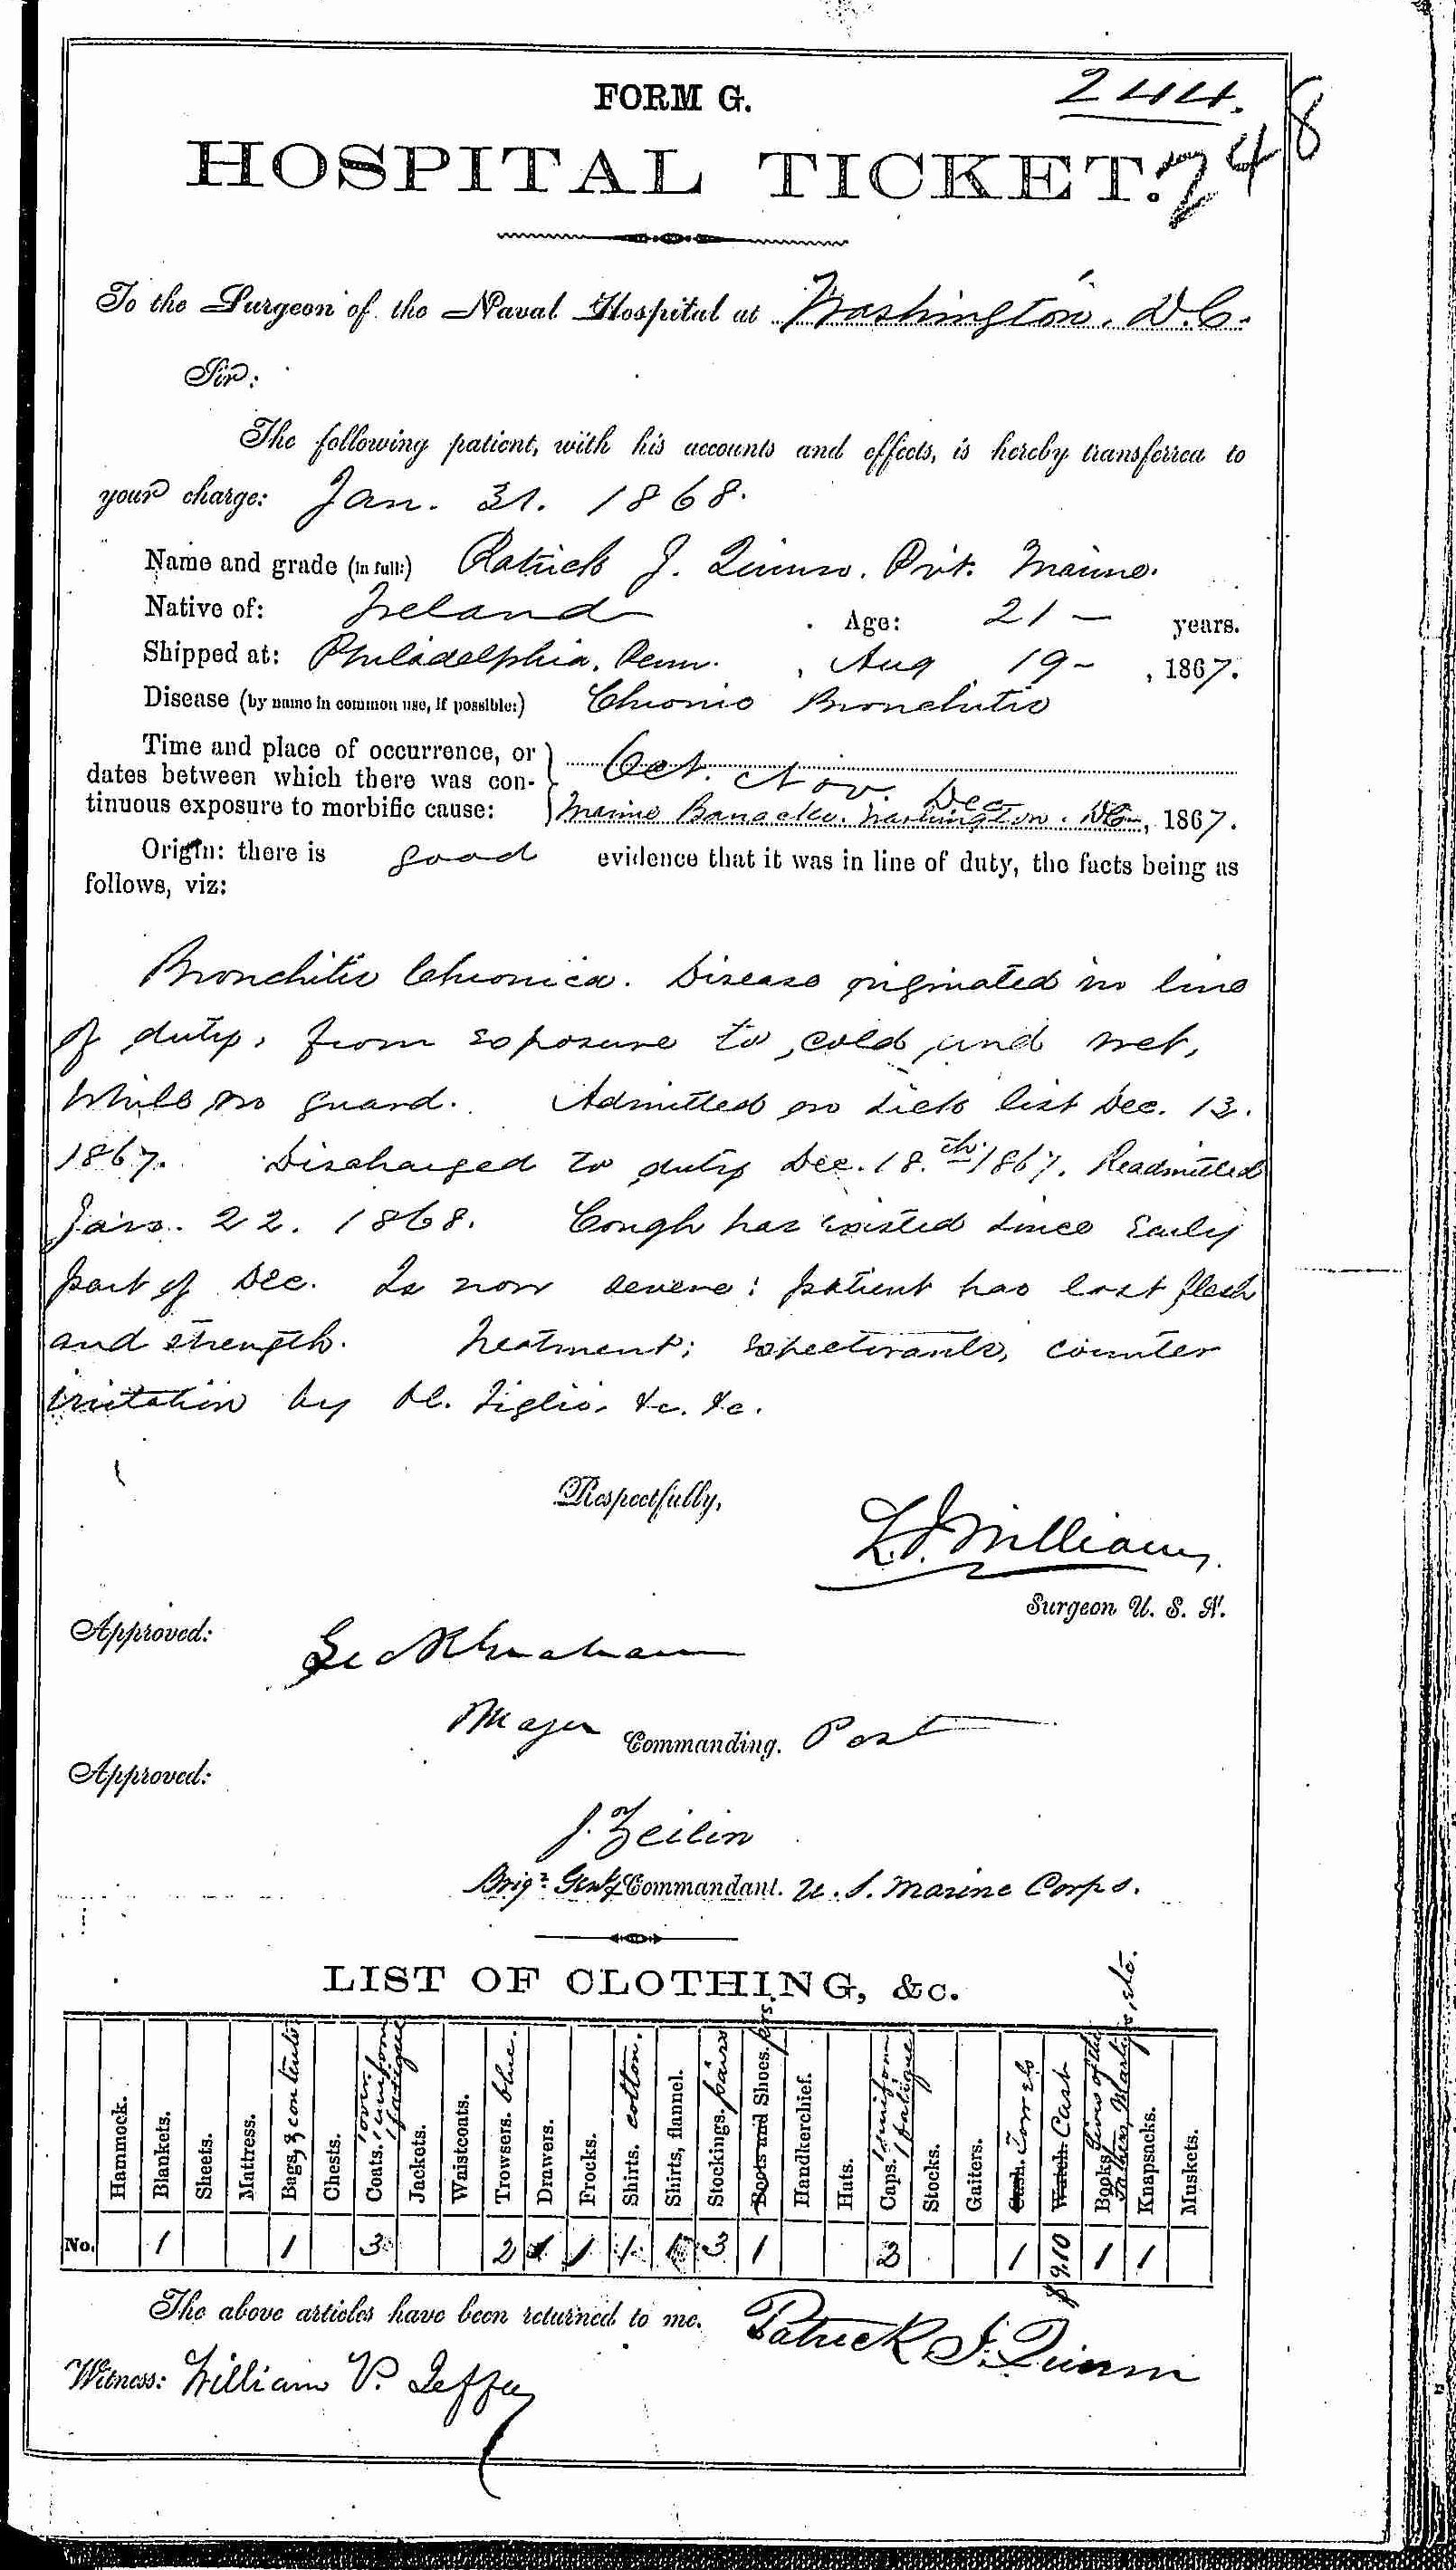 FORM G.
244.
248
HOSPITAL TICKET.
To the Surgeon of the Naval Hospital at Washington, D.C.
Sir:
The following patient, with his accounts and effects, is hereby transferred to
your charge: Jan. 31. 1868.
Name and grade (in full:) Patrick J. Quinn. Pvt. Marine.
Native of: Ireland . Age: 21 – years.
Shipped at: Philadelphia, Penn. , Aug 19 – , 1867.
Disease (by name in common use, if possible:) Chronic Bronchitis
Time and place of occurrence, or
dates between which there was con-
tinuous exposure to morbific cause:
Oct. Nov. Dec
Marine Barracks. Washington. DC , 1867.
Origin: there is good evidence that it was in line of duty, the facts being as
follows, viz:
Bronchitis Chronica. Disease originated in line
of duty, from exposure to cold and wet,
while on guard. Admitted on sick list Dec. 13.
1867. Discharged to duty Dec. 18.th 1867. Readmitted
Jan. 22. 1868. Cough has existed since early
part of Dec. Is now severe: patient has lost flesh
and strength. Treatment; expectorants, counter
irritation by Ol. Tiglii, &c. &c.
Respectfully,
L. J. Williams,
Surgeon U. S. N.
Approved:
Geo R Graham
Major Commanding. Post
Approved:
J. Zeilin
Brigr. Genl & Commandant. U. S. Marine Corps.
LIST OF CLOTHING, &c.
Hammock.
Blankets.
Sheets.
Mattress.
Bags, & contents
Chests.
Coats. 1 over. 1 uniform 1 fatigue
Jackets.
Waistcoats.
Trowsers. blue.
Drawers.
Frocks.
Shirts. cotton.
Shirts, flannel.
Stockings. pairs
Boots and Shoes. prs.
Handkerchief.
Hats.
Caps. 1 uniform 1 fatigue
Stocks.
Gaiters.
Cash. Towels
Watch. Cash
Books. Lives of the Fathers, Martyrs, etc.
Knapsacks.
Muskets.
No. 1 1 3 2 1 1 1 1 3 1 2 1 $9.10 1 1
The above articles have been returned to me. Patrick J. Quinn
Witness: William V.